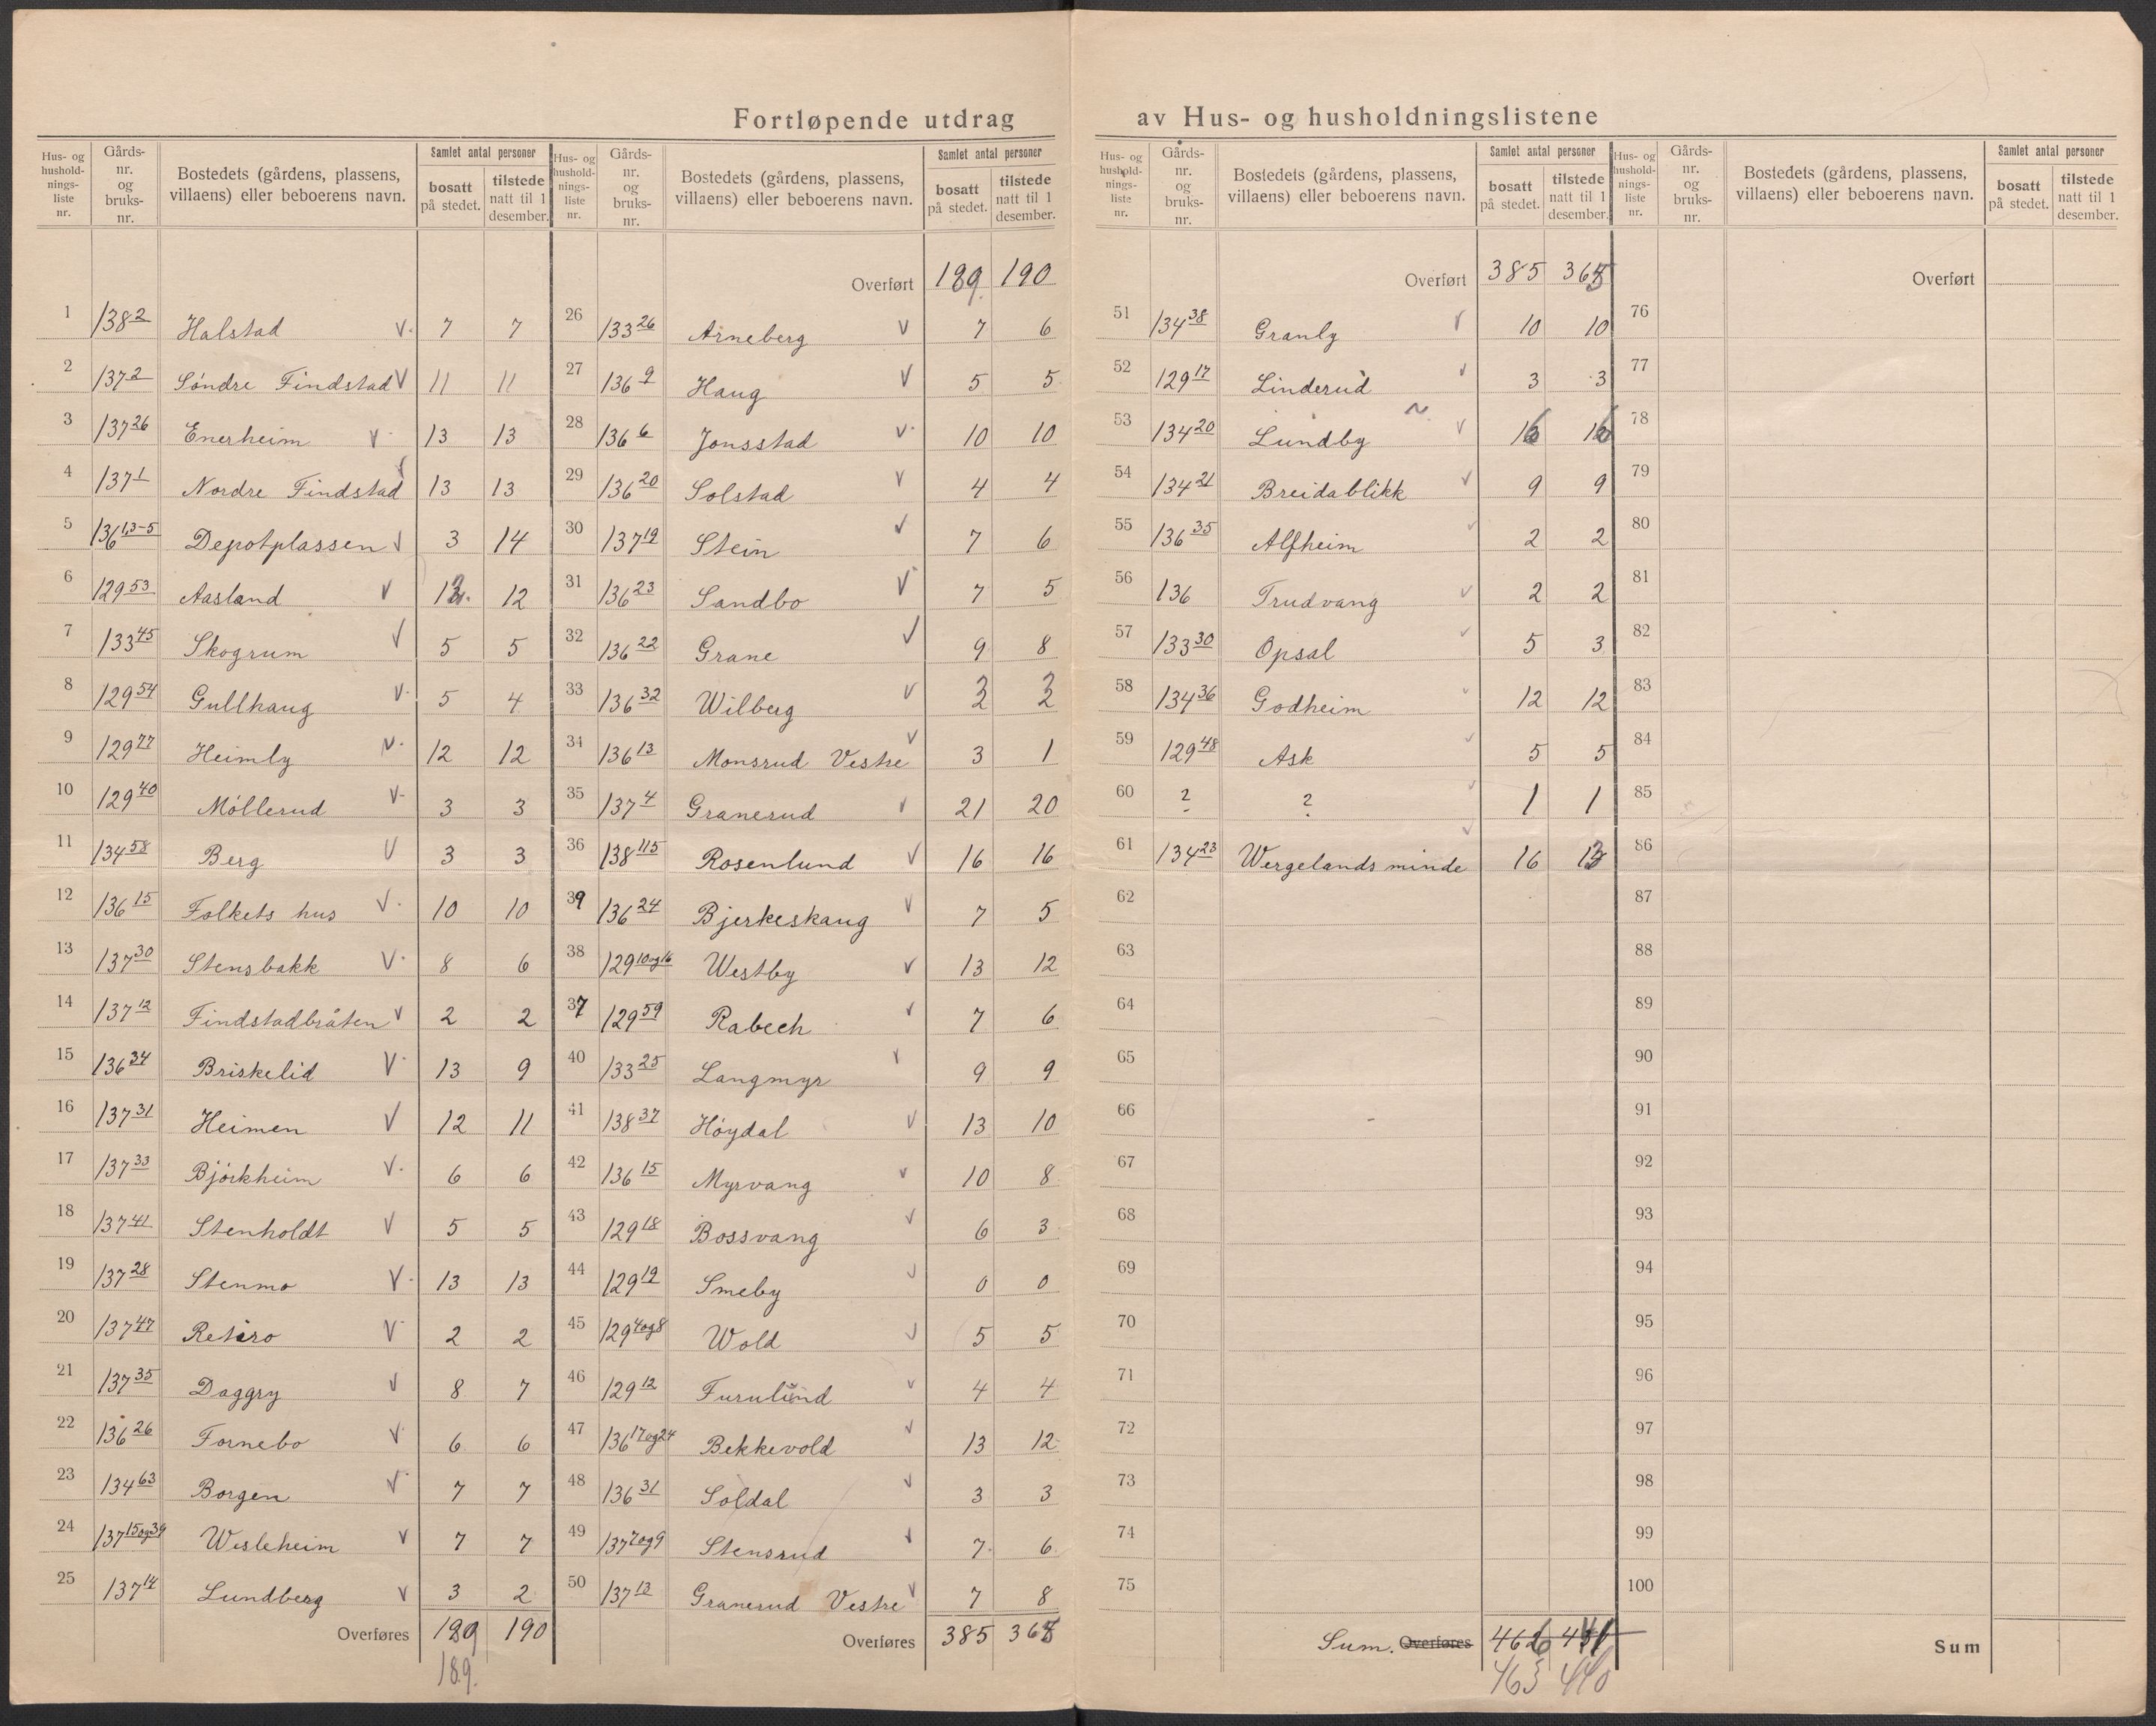 Fortløpende utdrag av Hus- og husholdningslistene
Hus- og hushold-nings-liste nr. | Gårds-nr. og bruks-nr. | Bostedets (gårdens, plassens, villaens) eller beboerens navn. | Samlet antal personer | bosatt på stedet. | tilstede natt til 1 desember.
1 138 2 Halstad V. 7 7
2 137 2 Söndre Findstad V 11 11
3 137 26 Enerheim V 13 13
4 137 1 Nordre Findstad 13 13
5 136 1,3-5 Depotplassen V 3 14
6 129 53 Aasland V 12
7 133 45 Skogrum V 5 5
8 129 54 Gullhaug V. 5 4
9 129 77 Heimly V. 12 12
10 129 40 Möllerud V 3 3
11 134 58 Berg V 3 3
12 136 15 Folkets hus V. 10 10
13 137 30 Stensbakk V. 8 6
14 137 12 Findstadbråten V 2 2
15 136 34 Briskelid V 13 9
16 137 31 Heimen V 12 11
17 137 33 Björkheim V. 6 6
18 137 41 Stenholdt V 5 5
19 137 28 Stenmo V. 13 13
20 137 47 Retiro V 2 2
21 137 35 Daggry V 8 7
22 136 26 Fornebo V 6 6
23 134 63 Borgen V 7 7
24 137 15og39 Wesleheim V 7 7
25 137 14 Lundberg V 3 2
Overføres 189 190
189.
Hus- og hushold-nings-liste nr. | Gårds-nr. og bruks-nr. | Bostedets (gårdens, plassens, villaens) eller beboerens navn. | Samlet antal personer | bosatt på stedet. | tilstede natt til 1 desember.
Overført 189. 190
26 133 26 Arneberg V 7 6
27 136 9 Haug V 5 5
28 136 6 Jonsstad V. 10 10
29 136 20 Solstad V 4 4
30 137 19 Stein V 7 6
31 136 23 Sandbo V 7 5
32 136 22 Grane V 9 8
33 136 32 Wilberg V
34 136 13 Monsrud Vestre V 3 1
35 137 4 Granerud V 21 20
36 138 115 Rosenlund V 16 16
39 136 24 Bjerkeskaug V 7 5
38 129 10og16 Westby V 13 12
37 129 59 Rabech V 7 6
40 133 25 Langmyr V 9 9
41 138 37 Höydal V 13 10
42 136 15 Myrvang V 10 8
43 129 18 Bossvang V 6 3
44 129 19 Smeby V 0 0
45 129 4og8 Wold V 5 5
46 129 12 Furulund V 4 4
47 136 17og24 Bekkevold V 13 12
48 136 31 Soldal V 3 3
49 137 7og9 Stensrud V 7 6
50 137 13 Granerud Vestre V 7 8
Overføres 385
Hus- og hushold-nings-liste nr. | Gårds-nr. og bruks-nr. | Bostedets (gårdens, plassens, villaens) eller beboerens navn. | Samlet antal personer | bosatt på stedet. | tilstede natt til 1 desember.
Overført 385
51 134 38 Granly V 10 10
52 129 17 Linderud V 3 3
53 134 20 Lundby V
54 134 21 Breidablikk V 9 9
55 136 35 Alfheim V 2 2
56 136 Trudvang V 2 2
57 133 30 Opsal V 5 3
58 134 36 Godheim V 12 12
59 129 48 Ask V 5 5
60 ? ? V 1 1
61 134 23 Wergelands minde V 16
62
63
64
65
66
67
68
69
70
71
72
73
74
75
Sum. Overføres 466
463 440
Hus- og hushold-nings-liste nr. | Gårds-nr. og bruks-nr. | Bostedets (gårdens, plassens, villaens) eller beboerens navn. | Samlet antal personer | bosatt på stedet. | tilstede natt til 1 desember.
Overført
76
77
78
79
80
81
82
83
84
85
86
87
88
89
90
91
92
93
94
95
96
97
98
99
100
Sum